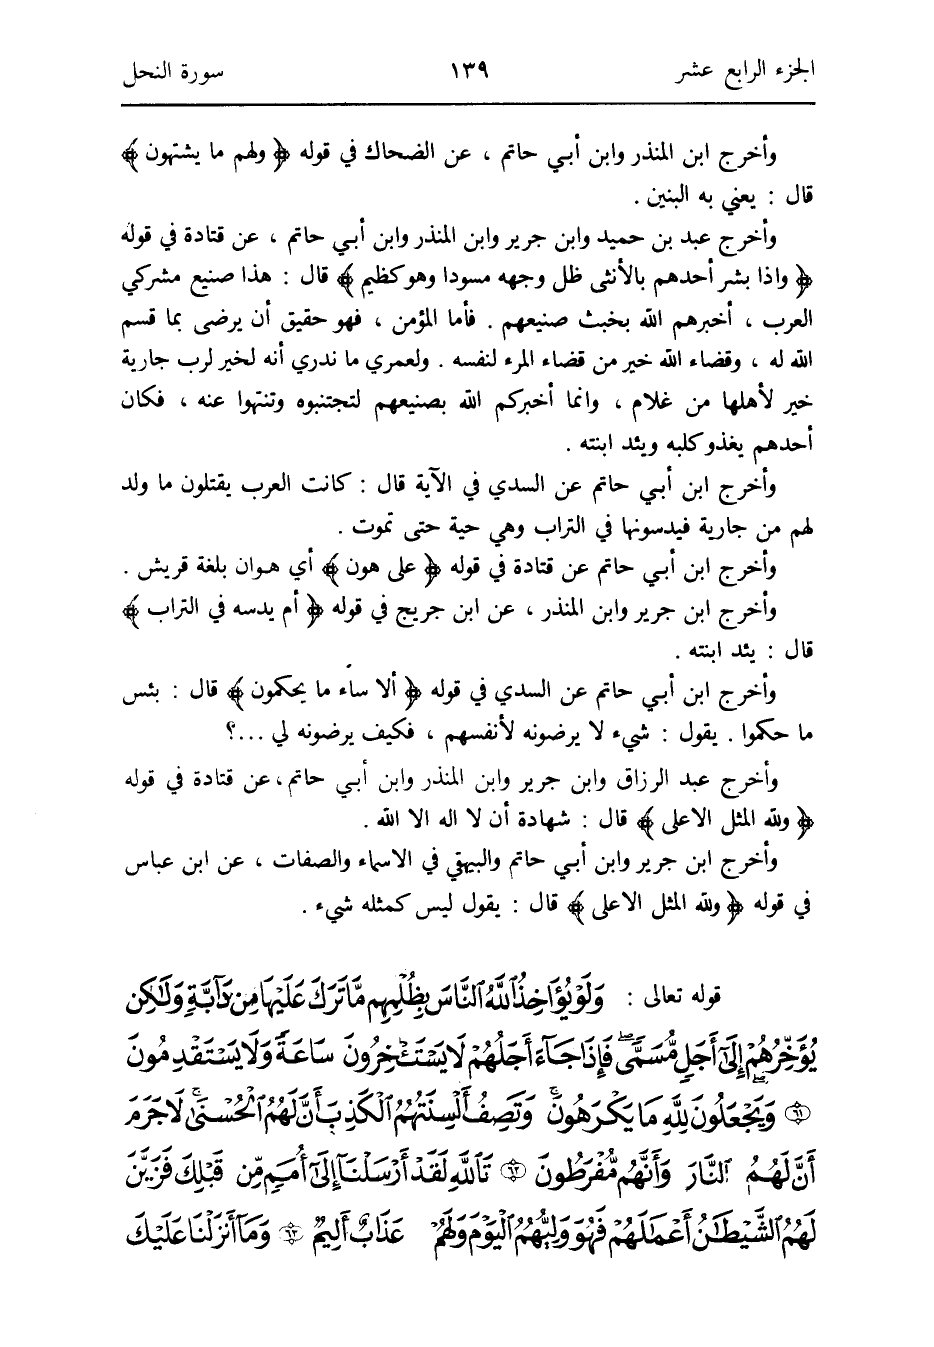 الجزء الرابع عشر ١٣٩ سورة النحل
وأخرج ابن المنذر وابن أبـي حاتم ، عن الضحاك في قوله ﴿ ولهم ما يشتهون ﴾
قال : يعني به البنين .
وأخرج عبد بن حميد وابن جرير وابن المنذر وابن أبـي حاتم ، عن قتادة في قوله
﴿ واذا بشر أحدهم بالأنثى ظل وجهه مسودا وهو كظيم ﴾ قال : هذا صنيع مشركي
العرب ، أخبرهم الله بخبث صنيعهم . فأما المؤمن ، فهو حقيق أن يرضى بما قسم
الله له ، وقضاء الله خير من قضاء المرء لنفسه . ولعمري ما ندري أنه لخير لرب جارية
خير لأهلها من غلام ، وانما أخبركم الله بصنيعهم لتجتنبوه وتنتهوا عنه ، فكان
أحدهم يغذو كلبه ويئد ابنته .
وأخرج ابن أبـي حاتم عن السدي في الآية قال : كانت العرب يقتلون ما ولد
لهم من جارية فيدسونها في التراب وهي حية حتى تموت .
وأخرج ابن أبـي حاتم عن قتادة في قوله ﴿ على هون ﴾ أي هـوان بلغة قريش .
وأخرج ابن جرير وابن المنذر ، عن ابن جريج في قوله ﴿ أم يدسه في التراب ﴾
قال : يئد ابنته .
وأخرج ابن أبـي حاتم عن السدي في قوله ﴿ ألا ساء ما يحكمون ﴾ قال : بئس
ما حكموا . يقول : شيء لا يرضونه لأنفسهم ، فكيف يرضونه لي ...؟
وأخرج عبد الرزاق وابن جرير وابن المنذر وابن أبـي حاتم ، عن قتادة في قوله
﴿ ولله المثل الاعلى ﴾ قال : شهادة أن لا اله الا الله .
وأخرج ابن جرير وابن أبـي حاتم والبيهقي في الاسماء والصفات ، عن ابن عباس
في قوله ﴿ ولله المثل الاعلى ﴾ قال : يقول ليس كمثله شيء .
قوله تعالى : وَلَوْ يُؤَاخِذُ ٱللَّهُ ٱلنَّاسَ بِظُلْمِهِم مَّا تَرَكَ عَلَيْهَا مِن دَآبَّةٍ وَلَٰكِن
يُؤَخِّرُهُمْ إِلَىٰٓ أَجَلٍ مُّسَمًّىۖ فَإِذَا جَآءَ أَجَلُهُمْ لَا يَسْتَـْٔخِرُونَ سَاعَةً وَلَا يَسْتَقْدِمُونَ
﴿٦١﴾ وَيَجْعَلُونَ لِلَّهِ مَا يَكْرَهُونَۚ وَتَصِفُ أَلْسِنَتُهُمُ ٱلْكَذِبَ أَنَّ لَهُمُ ٱلْحُسْنَىٰۚ لَا جَرَمَ
أَنَّ لَهُمُ ٱلنَّارَ وَأَنَّهُم مُّفْرَطُونَ ﴿٦٢﴾ تَٱللَّهِ لَقَدْ أَرْسَلْنَآ إِلَىٰٓ أُمَمٍ مِّن قَبْلِكَ فَزَيَّنَ
لَهُمُ ٱلشَّيْطَٰنُ أَعْمَٰلَهُمْ فَهُوَ وَلِيُّهُمُ ٱلْيَوْمَ وَلَهُمْ عَذَابٌ أَلِيمٌ ﴿٦٣﴾ وَمَآ أَنزَلْنَا عَلَيْكَ